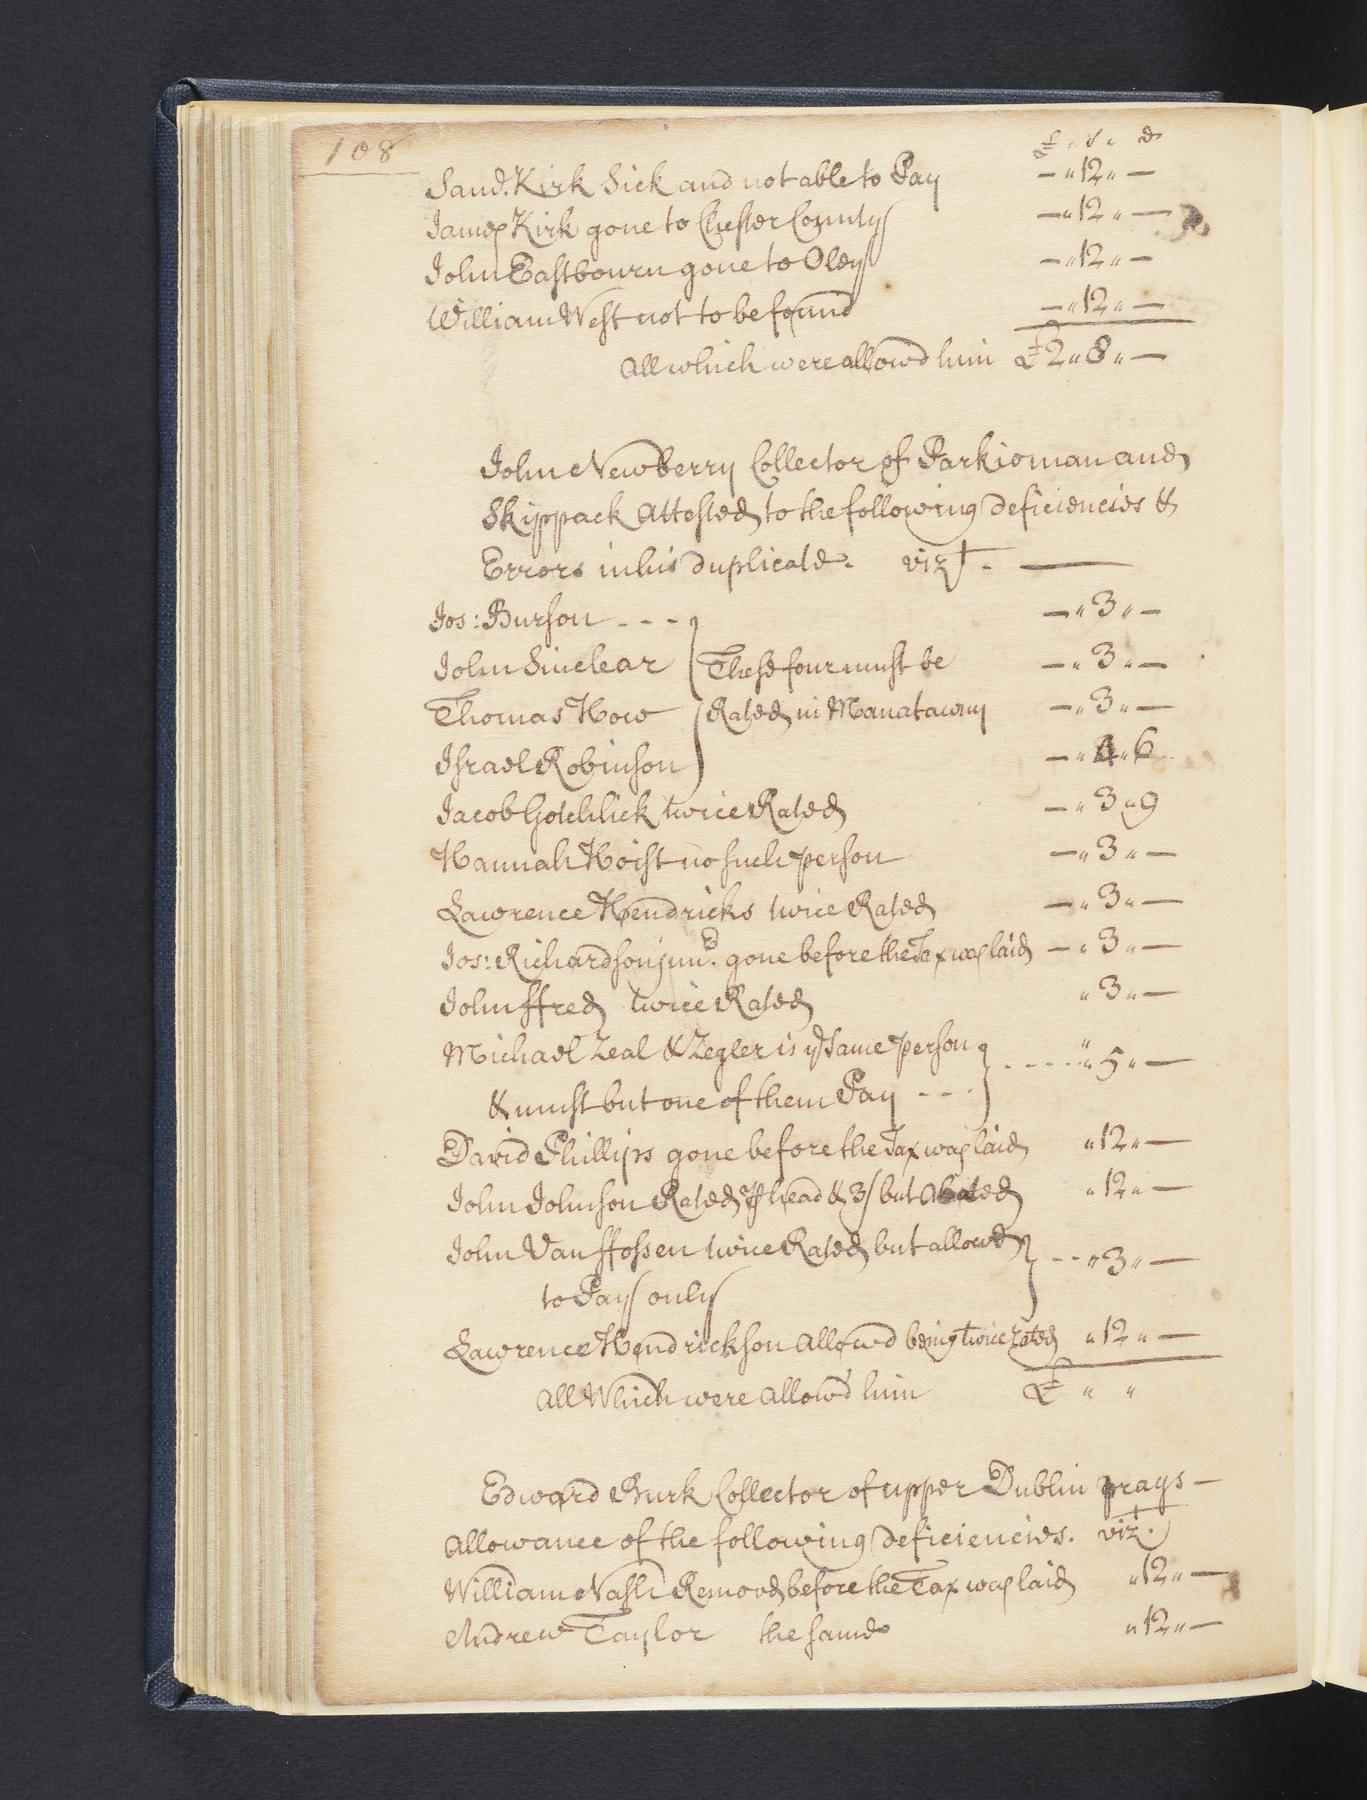 108
£ „ s „ d
Sam:d Kirk Sick and not able to Pay — „ 12 „ —
James Kirk gone to Chester County — „ 12 „ —
John Eastbourn gone to Oley — „ 12 „ —
William West not to be found — „ 12 „ —
All which were allow'd him £ 2 „ 8 „ —
John Newberry Collector of Parkioman and
Skippack Attested to the following deficiencies &
Errors in his duplicate. vizt. —
Jos: Burson - - - — „ 3 „ —
John Sinclear } These four must be — „ 3 „ —
Thomas How } Rated in Manatawny — „ 3 „ —
Israel Robinson — „ 4 „ 6
Jacob Gotchlick twice Rated — „ 3 „ 9
Hannah Hoist no such person — „ 3 „ —
Lawrence Hendricks twice Rated — „ 3 „ —
Jos: Richardson junr. gone before the Tax was laid — „ 3 „ —
John ffred twice Rated „ 3 „ —
Michael Zeal & Zegler is ye same person } - - - - „ 5 „ —
& must but one of them Pay - - -
David Phillips gone before the Tax was laid „ 12 „ —
John Johnson Rated P head & 3/ but Abated „ 12 „ —
John Van ffossen twice Rated but allowd } - - „ 3 „ —
to Pay only
Lawrence Hendrickson allowd being twice rated „ 12 „ —
All Which were allow'd him £ „ „
Edward Burk Collector of upper Dublin prays —
allowance of the following deficiencies. vizt.
William Nash Removd before the Tax was laid „ 12 „ —
Andrew Taylor the same „ 12 „ —